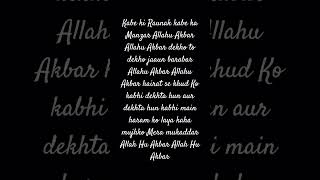 Kabe ki Raunak kabe ka
Manzar Allahu Akbar
Allahu Akbar dekho to
dekho jaaun barabar
Allahu Akbar Allahu
Akbar hairat se khud Ko
kabhi dekhta hun aur
dekhta hun kabhi main
haram ko laya kaha
mujhko Mera mukaddar
Allah Hu Akbar Allah Hu
Akbar